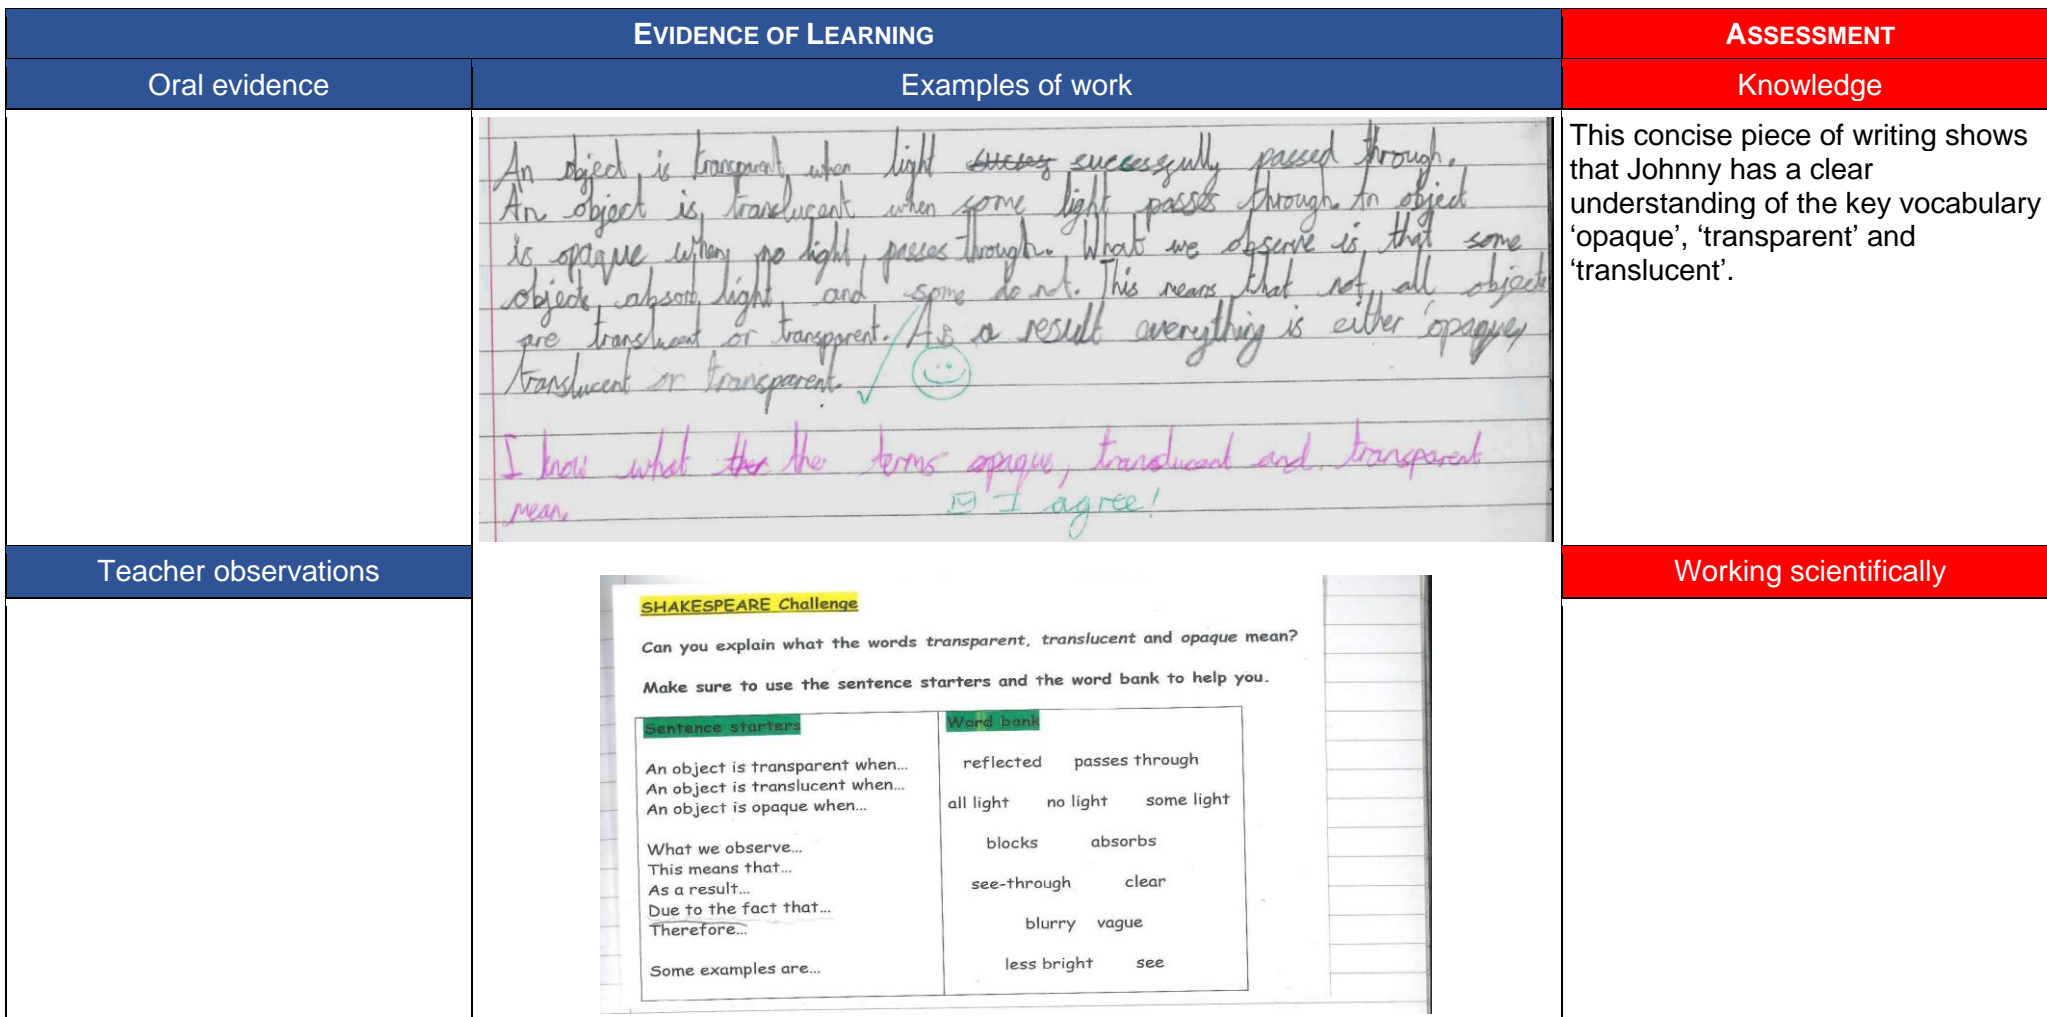 EVIDENCE OF LEARNING
ASSESSMENT
Oral evidence
Examples of work
Knowledge
An object is transparent when light succes successfully passed through.
An object is translucent when some light passes through. An object
is opaque when no light passes through. What we observe is that some
objects absorb light and some do not. This means that not all objects
are translucent or transparent. As a result everything is either opaque,
translucent or transparent.
I know what the the terms opaque, translucent and transparent
mean.
I agree!
This concise piece of writing shows
that Johnny has a clear
understanding of the key vocabulary
‘opaque’, ‘transparent’ and
‘translucent’.
Teacher observations
Working scientifically
SHAKESPEARE Challenge
Can you explain what the words transparent, translucent and opaque mean?
Make sure to use the sentence starters and the word bank to help you.
Sentence starters
An object is transparent when...
An object is translucent when...
An object is opaque when...
What we observe...
This means that...
As a result...
Due to the fact that...
Therefore...
Some examples are...
Word bank
reflected passes through
all light no light some light
blocks absorbs
see-through clear
blurry vague
less bright see